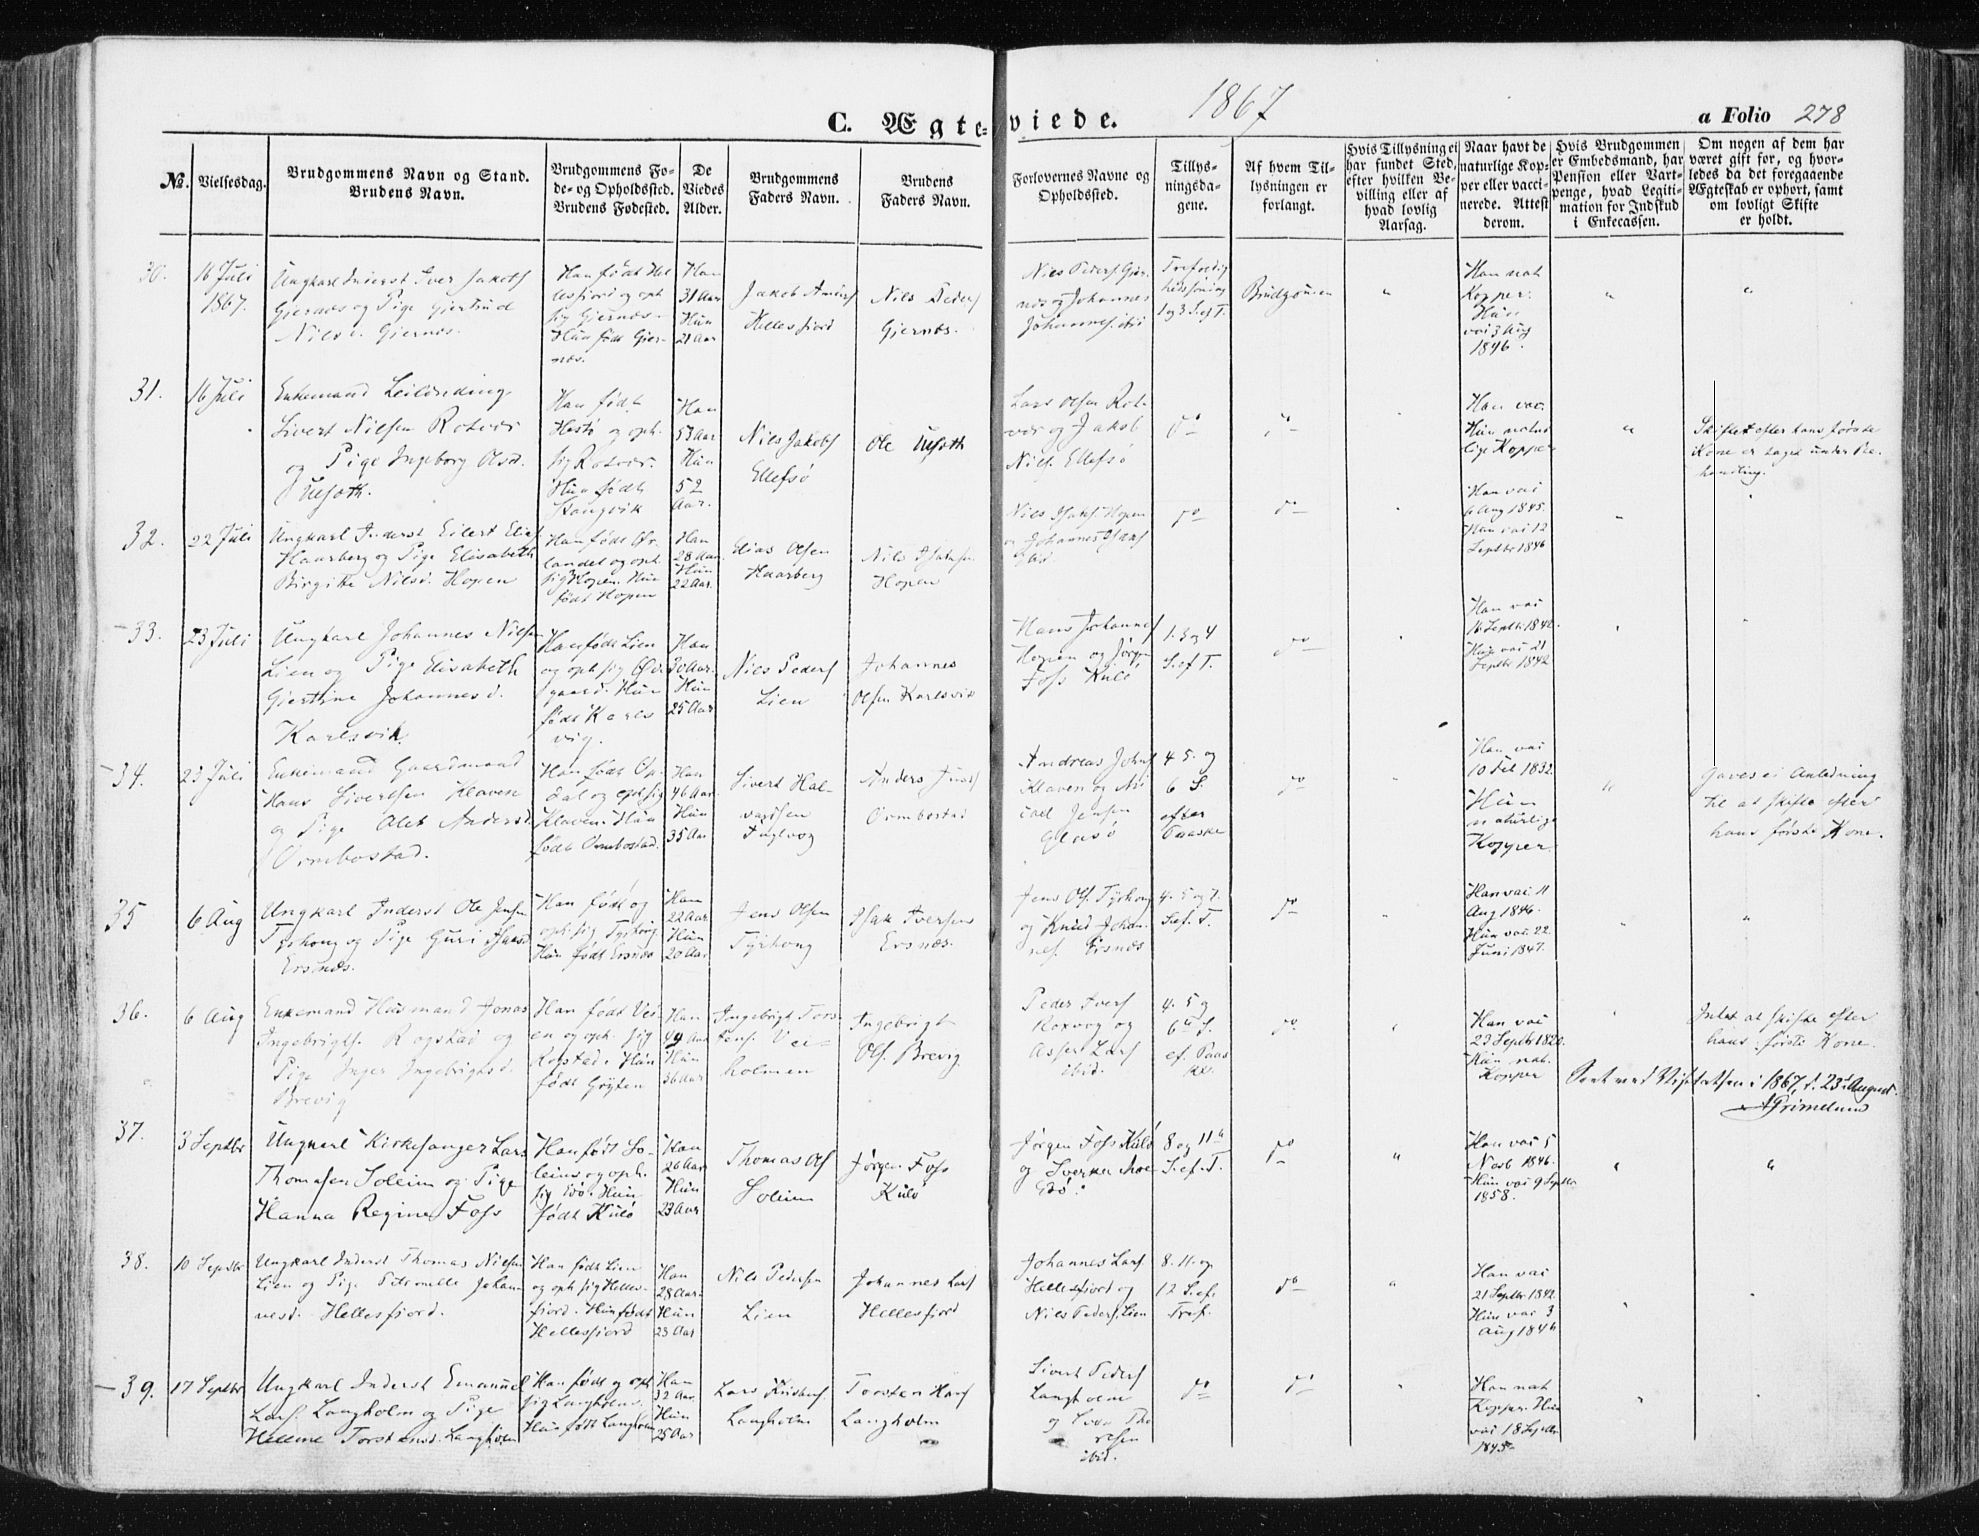 C. Ægteviede.
1867
a Folio 278
No.
Vielsesdag.
Brudgommens Navn og Stand.
Brudens Navn.
Brudgommens Fø-
de- og Opholdssted.
Brudens Fødested.
De
Viedes
Alder.
Brudgommens
Faders Navn.
Brudens
Faders Navn.
Forlovernes Navne og
Opholdssted.
Tillys-
ningsda-
gene.
Af hvem Til-
lysningen er
forlangt.
Hvis Tillysning ei
har fundet Sted,
efter hvilken Be-
villing eller af
hvad lovlig
Aarsag.
Naar havt de
naturlige Kop-
per eller vacci-
nerede. Attest
derom.
Hvis Brudgommen
er Embedsmand, har
Pension eller Vart-
penge, hvad Legiti-
mation for Indskud
i Enkecassen.
Om nogen af dem har
været gift før, og hvor-
ledes da det foregaaende
Ægteskab er ophørt, samt
om lovligt Skifte
er holdt.
30.
16 Juli
1867.
Ungkarl Inderst Iver Jakobs
Gjernæs og Pige Gjertrud
Nilsd. Gjernæs.
Han født Hel
lesfjord og oph
sig Gjernæs.
Hun født Gjer-
næs.
Han
31 Aar
Hun
21 Aar
Jakob
Hellesfjord
Nils Peders
Gjernæs.
Nils Peders Gjer-
næs og Johannes
Johannes. ibi
1 og 3 S. ef T.
Brudgommen
"
Han nat
Kopper.
Hun
vac 3 Aug
1846.
"
"
31.
16 Juli
Enkemand Leilænding
Sivert Nilsen Rotvær
og Pige Ingeborg Olsd.
Ulfseth.
Han født
Hestø og oph.
sig Rotvær.
Hun født
Stangvik
Han
53 Aar
Hun
52
Aar.
Nils Jakobs
Ellefsø
Ole
Lars Olsen Rot-
vær og Jakob
Nils. Ellefsø
do
do
Han vac.
Hun natur
lige Kopper
"
Skiftet efter hans første
Kone er taget under Be-
handling.
32.
22 Juli
Ungkarl Inderst Eilert Elias
Haarberg og Pige Elisabeth
Birgitte Nilsd. Hopen
Han født Ør
landet og oph
sig Hopen. Hun
født Hopen
Han
28 Aar
Hun
22 Aar.
Elias Olsen
Haarberg
Nils Isaksen
Hopen
Nils Isaks Hopen
og Johannes Isaks
ibid.
do
do
Han vac
6 Aug 1845.
Hun vac 12
Septbr 1846
33.
23 Juli
Ungkarl Johannes Nilsen
Lien og Pige Elisabeth
Gjertine Johannesd.
Karlsvik.
Han født Lien
og oph sig Øv
gaard. Hun
født Karls
vig.
Han
30 Aar.
Hun
25 Aar
Nils Peders
Lien
Johannes
Olsen Karlsvik
Hans Johannes
Hopen og Jørgen
Foss Kulø
1. 3 og 4
S. ef T.
do
Han vac
16 Septbr 1842.
Hun vac 21
Septbr 1842
34.
23 Juli
Enkemand Gaardmand
Hans Sivertsen Klaven
og Pige Alet Andersd.
Ormbostad.
Han født Op-
dal og oph sig
Klaven. Hun
født Ormbostad.
Han
46 Aar.
Hun
35 Aar
Sivert Hal-
vardsen
Fuglvog
Anders
Ormbostad
Andreas Johns
Klaven og Mi
cael Jensen
Glasø
4 5. og
6 S.
efter
Paaske
do
Han vac
10 Feb 1832
Hun
naturlige
Kopper.
"
Gaves ei Anledning
til at skifte efter
hans første Kone.
35
6 Aug
Ungkarl Inderst Ole Jensen
Tyrhoug og Pige Guri Isaksd
Ersnæs.
Han født og
oph. sig Tyrhoug
Hun født Ersnæs
Han
22 Aar
Hun
20 Aar
Jens Olsen
Tyrhoug
Isak Iversen
Ersnæs.
Jens Ols. Tyrhoug
og Knud Johan-
nes. Ersnæs
4. 5 og 7.
S. ef. T.
do
Han vac 11
Aug 1846.
Hun vac 22
Juni 1847.
36.
6 Aug
Enkemand Husmand Jonas
Ingebrigts. Rogstad og
Pige Inger Ingebrigtsd.
Brevig
Han født Vei-
en og oph. sig
Rogstad. Hun
født Grÿten
Han
49 Aar
Hun
36 Aar
Ingebrigt Tors-
tens. Vei-
holmen
Ingebrigt
Ols. Brevig
Peder Ivers
Roxvog og
Asser Lars
ibid.
4. 5 og
6te S.
ef. Paas
ke.
do
Han vac
23 Septbr 1820.
Hun nat.
Kopper
Intet at skifte efter
hans første Kone.
Seet ved Visitatsen i 1867 d. 23d August.
AGrimelund
37.
3 Septbr
Ungkarl Kirkesanger Lars
Thomasen Soleim og Pige
Hanna Regine Foss
Han født So-
leims og oph.
sig Edø. Hun
født Kulø
Han
26 Aar
Hun
23 Aar
Thomas Ols
Soleim
Jørgen Foss
Kulø
Jørgen Foss Kulø
og Sverker Moe
Edø.
8 og 11te
S. ef. T.
do
"
Han vac 5
Novb 1846.
Hun vac 9 Septbr
1858.
"
"
38.
10 Septbr
Ungkarl Inderst Thomas Nielsen
Lien og Pige Petronelle Johan
nesd. Hellesfjord.
Han født Lien
og oph sig Helles-
fjord. Hun født
Hellesfjord
Han
28 Aar
Hun
23 Aar
Nils Pedersen
Lien
Johannes Lars
Hellesfjord
Johannes Lars
Hellesfjord og
Nils Peders. Lien
8. 11. og
12 S. ef.
Tref.
do
"
Han vac
21 Septbr 1842
Hun vac 3
Aug 1846
39.
17 Septbr
Ungkarl Inderst Emanuel
Lars. Langholm og Pige
Helline Torstensd. Langholm
Han født og oph
sig Langholm.
Hun født Langholm
Han
32 Aar.
Hun
25 Aar
Lars
Langholm
Torsten Hans
Langholm
Sivert Peders
Langholm
og
ibid.
do
do
Han nat
Kopper. Hun
vac 18 Septbr
1845